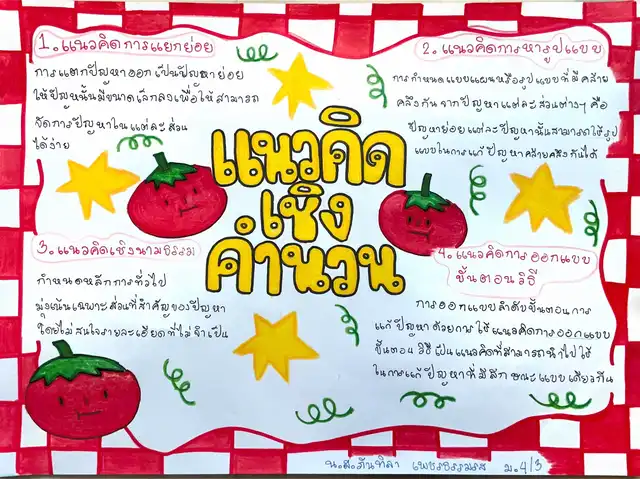 1. แนวคิดการแยกย่อย
การแตกปัญหาออกเป็นปัญหาย่อย
ให้ปัญหานั้นมีขนาดเล็กลงเพื่อให้สามารถ
จัดการปัญหาในแต่ละส่วน
ได้ง่าย
2. แนวคิดการหารูปแบบ
การกำหนดแบบแผนหรือรูปแบบที่มีคล้าย
คลึงกันจากปัญหาแต่ละส่วนต่างๆ คือ
ปัญหาย่อยแต่ละปัญหานั้นสามารถใช้รูป
แบบในการแก้ปัญหาคล้ายคลึงกันได้
แนวคิด
เชิง
คำนวน
3. แนวคิดเชิงนามธรรม
กำหนดหลักการทั่วไป
มุ่งเน้นเฉพาะส่วนที่สำคัญของปัญหา
โดยไม่สนใจรายละเอียดที่ไม่จำเป็น
4. แนวคิดการออกแบบ
ขั้นตอนวิธี
การออกแบบลำดับขั้นตอนการ
แก้ปัญหาด้วยการใช้แนวคิดการออกแบบ
ขั้นตอนวิธีเป็นแนวคิดที่สามารถนำไปใช้
ในการแก้ปัญหาที่มีลักษณะแบบเดียวกัน
น.ส.ภันทิลา เพชรธรรมรส ม.4/3